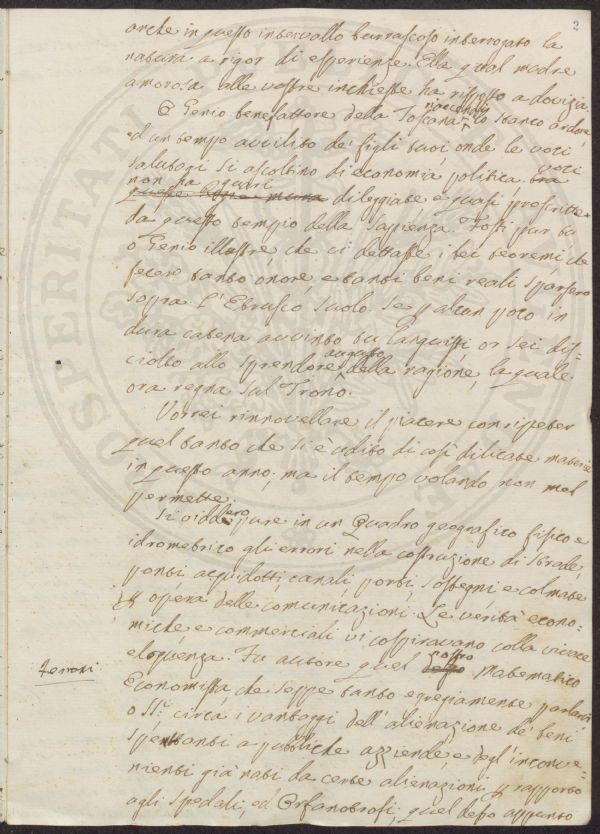 2
anche in questo intervallo burrascoso interrogato la
natura a rigor di esperienze. Ella qual madre
amorosa alle vostre inchieste ha risposto a dovizia.
O Genio benefattore della Toscana raccendi lo stanco ardore
ed un tempo avvilito de' figli tuoi onde le voci
salutari si ascoltino di economia politica
voci
non ha guari
dileggiate e quasi proscritte
da questo tempio della Sapienza. Fosti pur tu
o Genio illustre che ci dettasti i bei teoremi che
fecero tanto onore e tanti beni reali sparsero
sopra l'Etrusco suolo. Se p alcun poco in
dura catena avvinto tu languisti or sei dis-
ciolto allo sprendore augusto della ragione, la quale
ora regna sul Trono.
Vorrei rinnovellare il piacere con ripeter
quel tanto che si è udito di così dilicate materie
in questo anno; ma il tempo volando non mel
permette.
Si viddero pure in un Quadro geografico fisico e
idrometrico gli errori nella costruzione di strade,
ponti acquidotti canali porti sostegni e colmate
opera delle comunicazioni. Le verità econo-
miche e commerciali vi cospiravano colla vivace
eloquenza. Fu autore quel vostro Matematico
Ferroni
Economista che seppe tanto egregiamente parlarvi
o SS.ri circa i vantaggi dell'alienazione de' beni
spettanti a pubbliche aziende, e degl'inconve-
nienti già nati da certe alienazioni p rapporto
agli spedali, ed Orfanotrofi; quel desso appunto